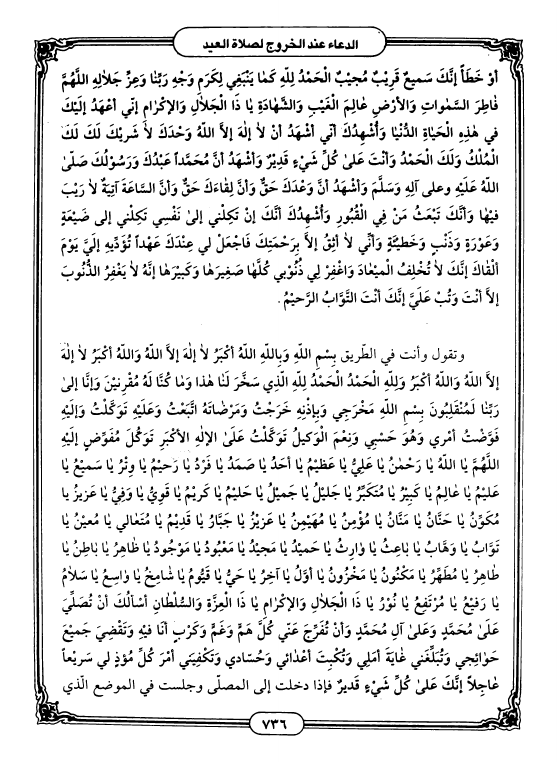 الدعاء عند الخروج لصلاة العيد
أَوْ خَطَأً إِنَّكَ سَمِيعٌ قَرِيبٌ مُجِيبٌ الْحَمْدُ لِلّٰهِ كَمٰا يَنْبَغِي لِكَرَمِ وَجْهِ رَبِّنٰا وَعِزِّ جَلاٰلِهِ اللّٰهُمَّ
فٰاطِرَ السَّمٰوٰاتِ وَالأَرْضِ عٰالِمَ الْغَيْبِ وَالشَّهٰادَةِ يٰا ذَا الْجَلاٰلِ وَالإِكْرٰامِ إِنّي أَعْهَدُ إِلَيْكَ
في هٰذِهِ الْحَيٰاةِ الدُّنْيٰا وَأُشْهِدُكَ أَنّي أَشْهَدُ أَنْ لاٰ إِلٰهَ إِلاَّ اللّٰهُ وَحْدَكَ لاٰ شَرِيكَ لَكَ لَكَ
الْمُلْكُ وَلَكَ الْحَمْدُ وَأَنْتَ عَلىٰ كُلِّ شَيْءٍ قَدِيرٌ وَأَشْهَدُ أَنَّ مُحَمَّداً عَبْدُكَ وَرَسُولُكَ صَلَّى
اللّٰهُ عَلَيْهِ وعلى آلِهِ وَسَلَّمَ وَأَشْهَدُ أَنَّ وَعْدَكَ حَقٌّ وَأَنَّ لِقٰاءَكَ حَقٌّ وَأَنَّ السّٰاعَةَ آتِيَةٌ لاٰ رَيْبَ
فيهٰا وَأَنَّكَ تَبْعَثُ مَنْ فِي الْقُبُورِ وَأُشْهِدُكَ أَنَّكَ إِنْ تَكِلْني إِلىٰ نَفْسِي تَكِلْني إِلى ضَيْعَةٍ
وَعَوْرَةٍ وَذَنْبٍ وَخَطيئَةٍ وَأَنّي لاٰ أَثِقُ إِلاَّ بِرَحْمَتِكَ فَاجْعَلْ لي عِنْدَكَ عَهْداً تُؤَدِّيهِ إِلَيَّ يَوْمَ
أَلْقٰاكَ إِنَّكَ لاٰ تُخْلِفُ الْميعٰادَ وَاغْفِرْ لي ذُنُوبي كُلَّهٰا صَغِيرَهٰا وَكَبِيرَهٰا إِنَّهُ لاٰ يَغْفِرُ الذُّنُوبَ
إِلاَّ أَنْتَ وَتُبْ عَلَيَّ إِنَّكَ أَنْتَ التَّوّٰابُ الرَّحيمُ.
وتقول وأنت في الطّريق بِسْمِ اللّٰهِ وَبِاللّٰهِ اللّٰهُ أَكْبَرُ لاٰ إِلٰهَ إِلاَّ اللّٰهُ وَاللّٰهُ أَكْبَرُ لاٰ إِلٰهَ
إِلاَّ اللّٰهُ وَاللّٰهُ أَكْبَرُ وَلِلّٰهِ الْحَمْدُ الْحَمْدُ لِلّٰهِ الَّذي سَخَّرَ لَنٰا هٰذا وَمٰا كُنّٰا لَهُ مُقْرِنِينَ وَإِنّٰا إِلى
رَبِّنٰا لَمُنْقَلِبُونَ بِسْمِ اللّٰهِ مَخْرَجي وَبِإِذْنِهِ خَرَجْتُ وَمَرْضٰاتَهُ اتَّبَعْتُ وَعَلَيْهِ تَوَكَّلْتُ وَإِلَيْهِ
فَوَّضْتُ أَمْري وَهُوَ حَسْبي وَنِعْمَ الْوَكيلُ تَوَكَّلْتُ عَلىٰ الإِلٰهِ الأَكْبَرِ تَوَكُّلَ مُفَوِّضٍ إِلَيْهِ
اللّٰهُمَّ يٰا اللّٰهُ يٰا رَحْمٰنُ يٰا عَلِيُّ يٰا عَظيمُ يٰا أَحَدُ يٰا صَمَدُ يٰا فَرْدُ يٰا رَحيمُ يٰا وِتْرُ يٰا سَميعُ يٰا
عَليمُ يٰا عٰالِمُ يٰا كَبيرُ يٰا مُتَكَبِّرُ يٰا جَليلُ يٰا جَميلُ يٰا حَليمُ يٰا كَريمُ يٰا قَوِيُّ يٰا وَفِيُّ يٰا عَزيزُ يٰا
مُكَوِّنُ يٰا حَنّٰانُ يٰا مَنّٰانُ يٰا مُؤْمِنُ يٰا مُهَيْمِنُ يٰا عَزيزُ يٰا جَبّٰارُ يٰا قَديمُ يٰا مُتَعٰالي يٰا مُعينُ يٰا
تَوّٰابُ يٰا وَهّٰابُ يٰا بٰاعِثُ يٰا وٰارِثُ يٰا حَميدُ يٰا مَجيدُ يٰا مَعْبُودُ يٰا مَوْجُودُ يٰا ظٰاهِرُ يٰا بٰاطِنُ يٰا
طٰاهِرُ يٰا مُطَهِّرُ يٰا مَكْنُونُ يٰا مَخْزُونُ يٰا أَوَّلُ يٰا آخِرُ يٰا حَيُّ يٰا قَيُّومُ يٰا شٰامِخُ يٰا وٰاسِعُ يٰا سَلاٰمُ
يٰا رَفيعُ يٰا مُرْتَفِعُ يٰا نُورُ يٰا ذَا الْجَلاٰلِ وَالإِكْرٰامِ يٰا ذَا الْعِزَّةِ وَالسُّلْطٰانِ أَسْأَلُكَ أَنْ تُصَلِّيَ
عَلىٰ مُحَمَّدٍ وَعَلىٰ آلِ مُحَمَّدٍ وَأَنْ تُفَرِّجَ عَنّي كُلَّ هَمٍّ وَغَمٍّ وَكَرْبٍ أَنَا فيهِ وَتَقْضِيَ جَميعَ
حَوٰائِجي وَتُبَلِّغَني غٰايَةَ أَمَلي وَتَكْبِتَ أَعْدٰائي وَحُسّٰادي وَتَكْفِيَني أَمْرَ كُلِّ مُؤْذٍ لي سَريعاً
عٰاجِلاً إِنَّكَ عَلىٰ كُلِّ شَيْءٍ قَديرٌ فإذا دخلت إلى المصلّى وجلست في الموضع الّذي
٧٣٦